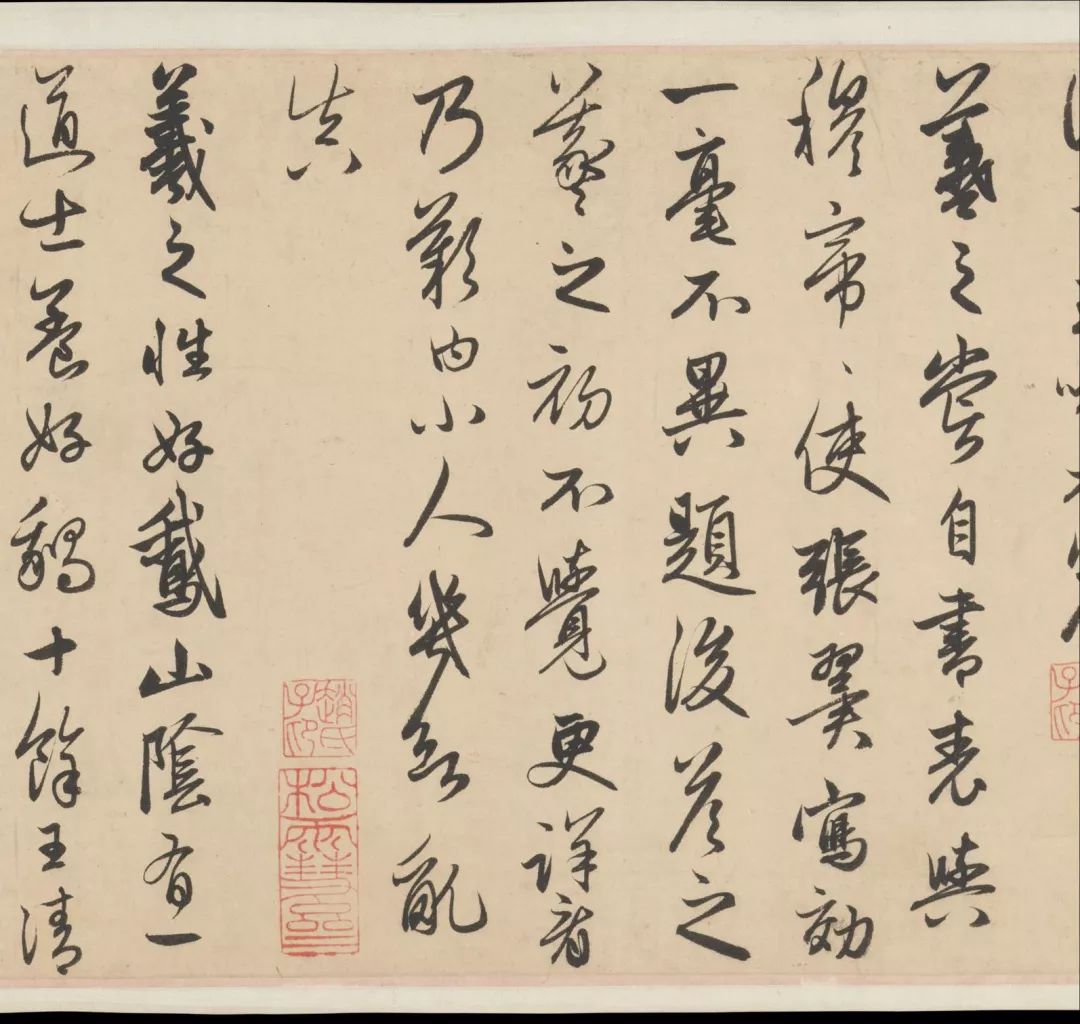 羲之嘗自書表與
穆帝、使張翼寫効
一毫不異題後答之
羲之初不覺更詳看
乃歎曰小人幾欲亂
真
趙氏子昂
松雪齋
羲之性好鵞山陰有一
道士養好鵝十餘王清